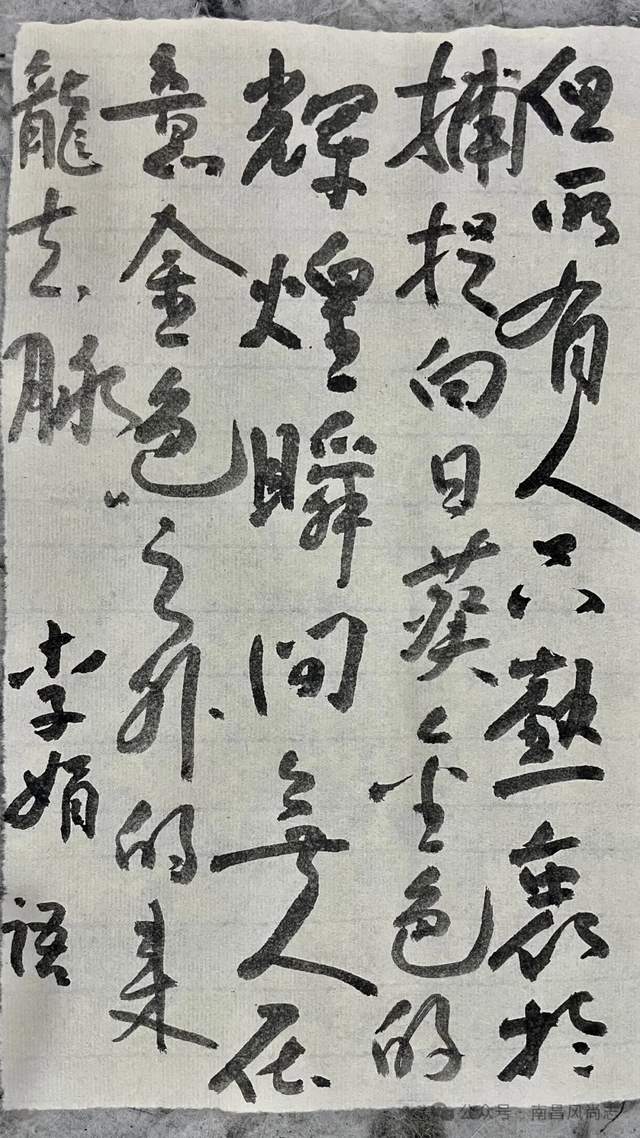 但所有人只熱衷於
捕捉向日葵金色的
輝煌瞬间無人在
意金色之外的来
龍去脉
李娟语
公众号·南昌风尚志